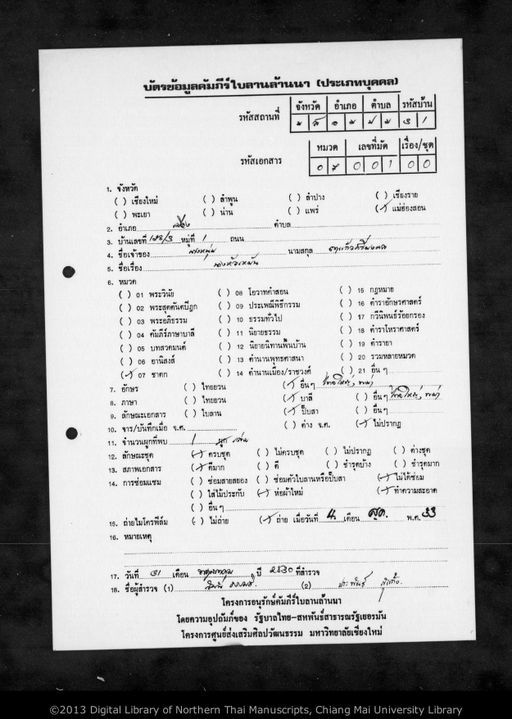 บัตรข้อมูลคัมภีร์ใบลานล้านนา (ประเภทบุคคล)
รหัสสถานที่ จังหวัด อำเภอ ตำบล รหัสบ้าน
รหัสเอกสาร หมวด เลขที่มัด เรื่อง/ชุด
0 7 0 0 1 0 0
1. จังหวัด
( ) เชียงใหม่ ( ) ลำพูน ( ) ลำปาง ( ) เชียงราย
( ) พะเยา ( ) น่าน ( ) แพร่ (/) แม่ฮ่องสอน
2. อำเภอ เมือง ตำบล
3. บ้านเลขที่ หมู่ที่ 1 ถนน
4. ชื่อเจ้าของ นามสกุล
5. ชื่อเรื่อง
6. หมวด
( ) 01 พระวินัย ( ) 08 โอวาทคำสอน ( ) 15 กฎหมาย
( ) 02 พระสุตตันตปิฎก ( ) 09 ประเพณีพิธีกรรม ( ) 16 ตำราอักษรศาสตร์
( ) 03 พระอภิธรรม ( ) 10 ธรรมทั่วไป ( ) 17 กวีนิพนธ์ร้อยกรอง
( ) 04 คัมภีร์ภาษาบาลี ( ) 11 นิยายธรรม ( ) 18 ตำราโหราศาสตร์
( ) 05 บทสวดมนต์ ( ) 12 นิยายนิทานพื้นบ้าน ( ) 19 ตำรายา
( ) 06 อานิสงส์ ( ) 13 ตำนานพุทธศาสนา ( ) 20 รวมหลายหมวด
(/) 07 ชาดก ( ) 14 ตำนานเมือง/ราชวงศ์ ( ) 21 อื่น ๆ
7. อักษร ( ) ไทยยวน (/) อื่นๆ
8. ภาษา ( ) ไทยยวน (/) บาลี ( ) อื่นๆ
9. ลักษณะเอกสาร ( ) ใบลาน (/) ปั๊บสา ( ) อื่นๆ
10. จาร/บันทึกเมื่อ จ.ศ. ( ) ค่าง จ.ศ. (/) ไม่ปรากฏ
11. จำนวนผูกที่พบ 1
12. ลักษณะชุด (/) ครบชุด ( ) ไม่ครบชุด ( ) ไม่ปรากฏ ( ) ต่างชุด
13. สภาพเอกสาร (/) ดีมาก ( ) ดี ( ) ชำรุดบ้าง ( ) ชำรุดมาก
14. การซ่อมแซม ( ) ซ่อมสายสยอง ( ) ซ่อมตัวใบลานหรือปั๊บสา (/) ไม่ได้ซ่อม
( ) ใส่ไม้ประกับ (/) ห่อผ้าใหม่ (/) ทำความสะอาด
( ) อื่นๆ
15. ถ่ายไมโครฟิล์ม ( ) ไม่ถ่าย (/) ถ่าย เมื่อวันที่ 4 เดือน พ.ศ. 33
16. หมายเหตุ
17. วันที่ 31 เดือน ปี 2530 ที่สำรวจ
18. ชื่อผู้สำรวจ (1) (2)
โครงการอนุรักษ์คัมภีร์ใบลานล้านนา
โดยความอุปถัมภ์ของ รัฐบาลไทย-สหพันธ์สาธารณรัฐเยอรมัน
โครงการศูนย์ส่งเสริมศิลปวัฒนธรรม มหาวิทยาลัยเชียงใหม่
©2013 Digital Library of Northern Thai Manuscripts, Chiang Mai University Library